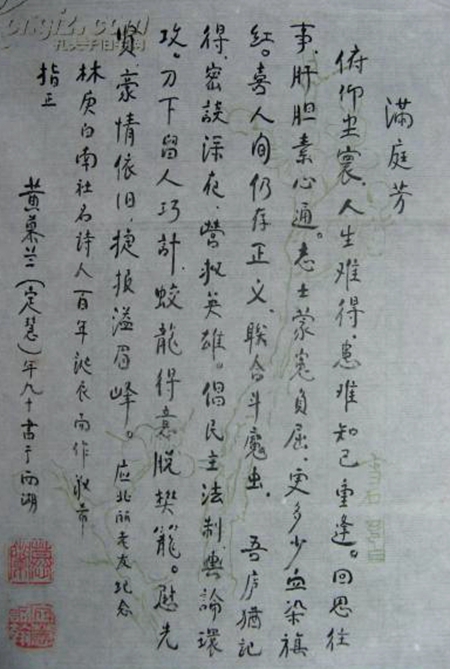 满庭芳
俯仰尘寰、人生难得、患难知己重逢。回思往
事、肝胆素心通。志士蒙冤负屈、更多少血染旗
红。喜人间仍存正义、联合斗魔虫。 吾庐犹记
得、密谈深夜、营救英雄。倡民主法制、舆论环
攻。刀下留人巧计、蛟龙得意脱樊笼。慰先
贤、豪情依旧、捷报溢眉峰。 应北丽老友纪念
林庚白南社名诗人百年诞辰而作敬希
指正
黄慕兰(定慧)年九十书于西湖